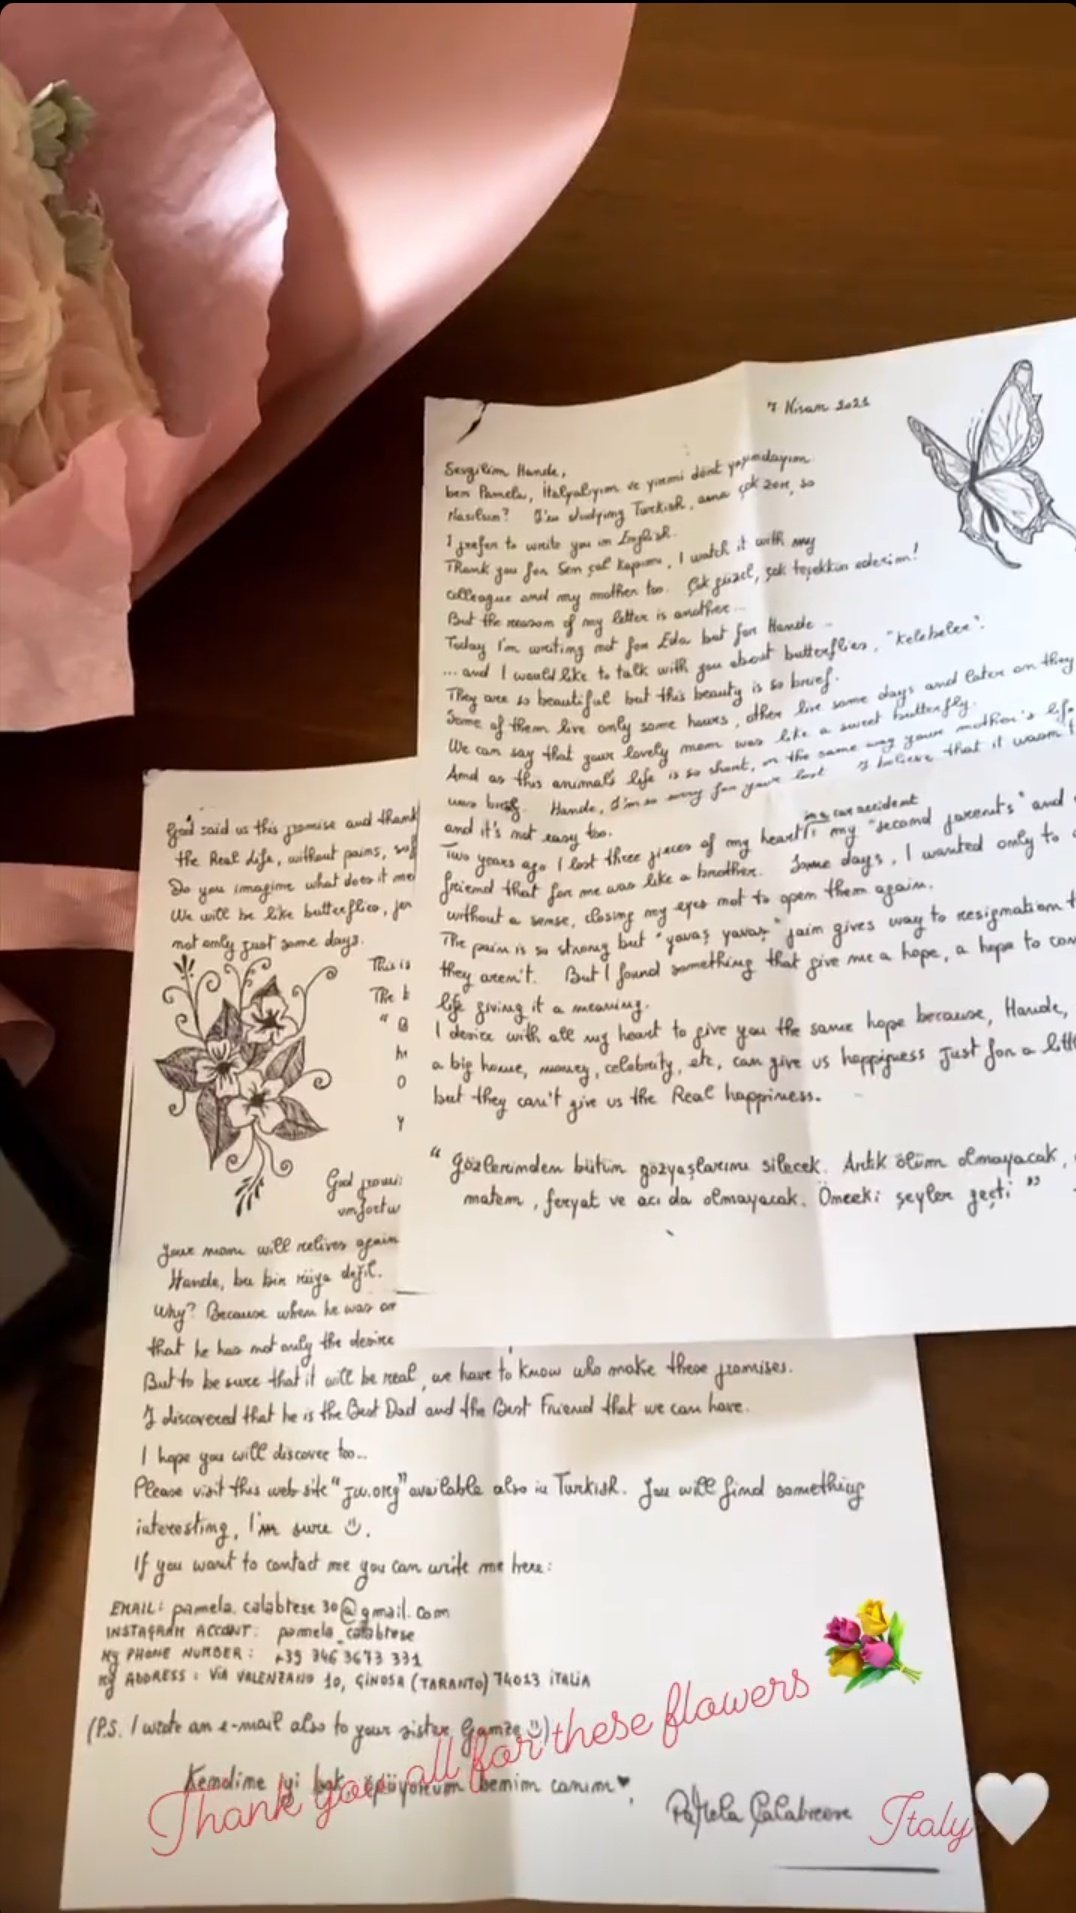 7 Nisan 2021
Sevgilim Hande,
ben Pamela, İtalyalıyım ve yirmi dört yaşındayım.
Nasılsın? I'm studying Turkish, ama çok zor, so
I prefer to write you in English.
Thank you for Sen çal kapımı, I watch it with my
colleague and my mother too. Çok güzel, çok teşekkür ederim!
But the reason of my letter is another...
Today I'm writing not for Eda but for Hande...
...and I would like to talk with you about butterflies, "Kelebeler".
They are so beautiful but this beauty is so brief.
Some of them live only some hours, other live some days and later on they
We can say that your lovely mom was like a sweet butterfly.
And as this animal's life is so short, in the same way your mother's life
was brief. Hande, I'm so sorry for your lost. I believe that it wasn't
and it's not easy too.
in a car accident
Two years ago I lost three pieces of my heart: my "second parents" and
friend that for me was like a brother. Some days, I wanted only to
without a sense, closing my eyes not to open them again.
The pain is so strong but "yavaş yavaş" pain gives way to resignation
they aren't. But I found something that give me a hope, a hope to
life giving it a meaning.
I desire with all my heart to give you the same hope because, Hande,
a big home, money, celebrity, etc, can give us happiness just for a
but they can't give us the Real happiness.
"Gözlerinden bütün gözyaşlarını silecek. Artık ölüm olmayacak,
matem, feryat ve acı da olmayacak. Önceki şeyler geçti"
God said us this promise and
the Real Life, without pains,
Do you imagine what does it
We will be like butterflies,
not only just some days.
This is
The
God
Your mom will relives again
Hande, bu bir rüya değil.
Why? Because when he was
that he has not only the desire
But to be sure that it will be real, we have to know who make these promises.
I discovered that he is the Best Dad and the Best Friend that we can have.
I hope you will discover too...
Please visit this web site "jw.org" available also in Turkish. You will find something
interesting, I'm sure ☺.
If you want to contact me you can write me here:
EMAIL: pamela.calabrese30@gmail.com
INSTAGRAM ACCONT: pamela_calabrese
MY PHONE NUMBER: +39 346 3673 331
MY ADDRESS: VIA VALENZANO 10, GINOSA (TARANTO) 74013 ITALIA
(P.S. I wrote an e-mail also to your sister Gamze ☺)
Kendine iyi bak, öpüyorum benim canım♥,
Pamela Calabrese
Thank you all for these flowers 💐
Italy 🤍